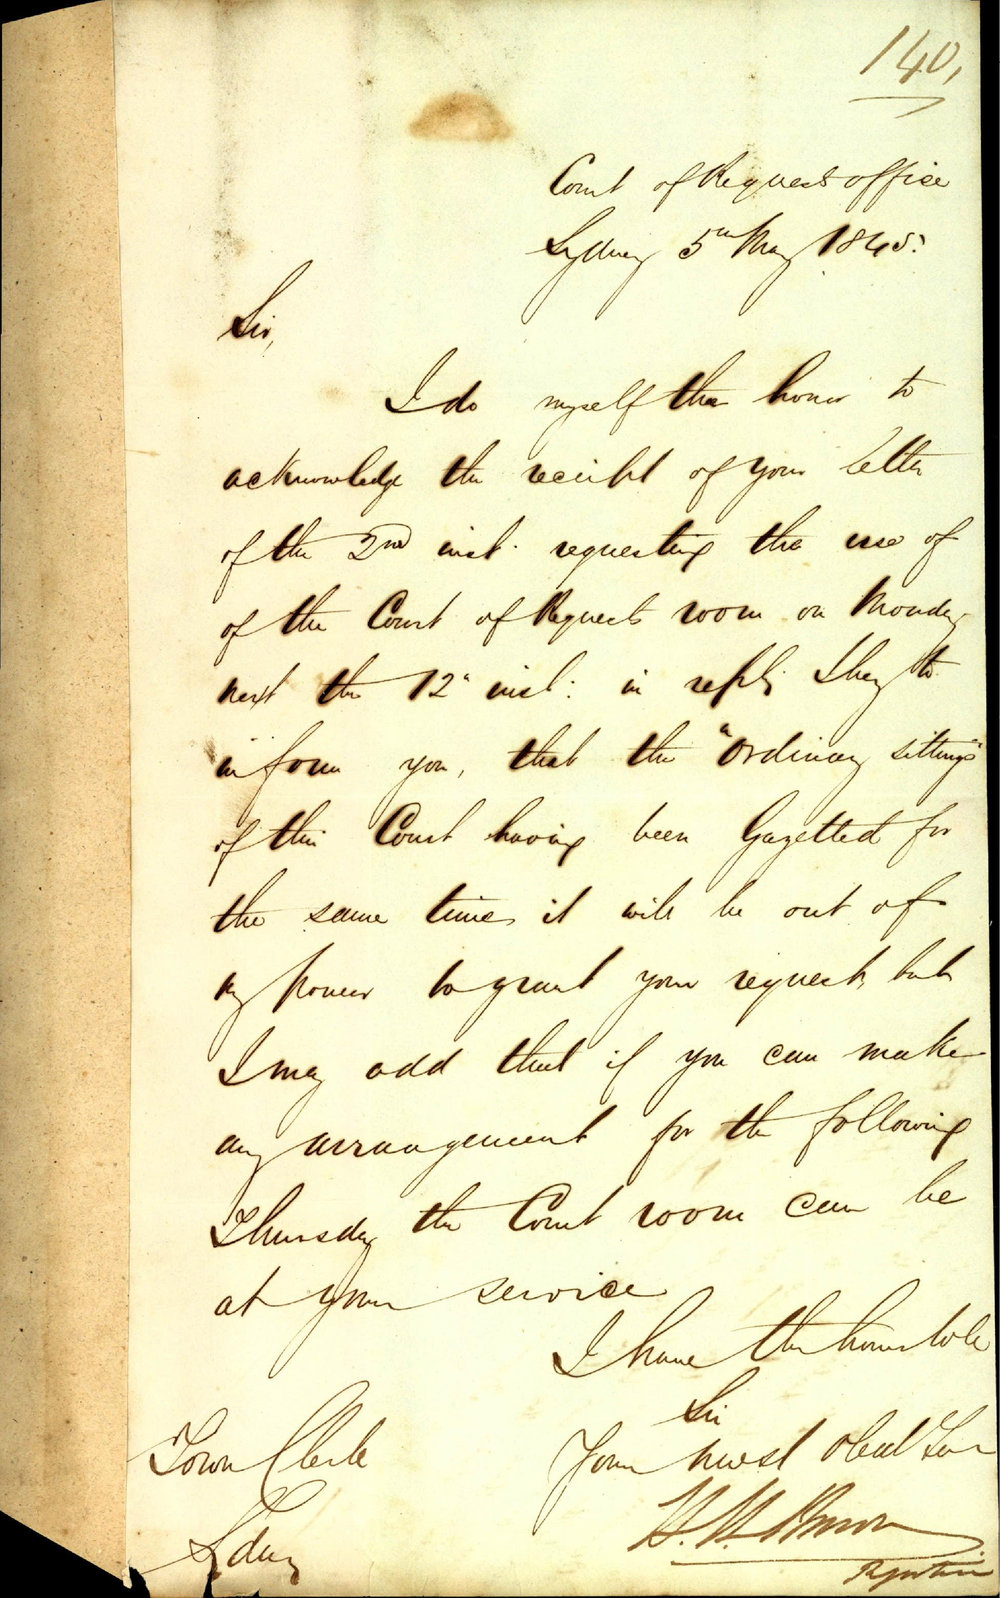 140,
Court of Requests office
Sydney 5th May 1845.
Sir,
I do myself the honor to
acknowledge the receipt of your letter
of the 2nd inst. requesting the use of
of the Court of Requests room on Monday
next the 12" inst: in reply I beg to
inform you, that the "Ordinary sittings"
of this Court having been Gazetted for
the same time, it will be out of
my power to grant your request, but
I may add that if you can make
any arrangement for the following
Thursday the Court room can be
at your service
I have the honor to be
Sir
Your most Obed Ser
Town Clerk
Sydney
Registrar